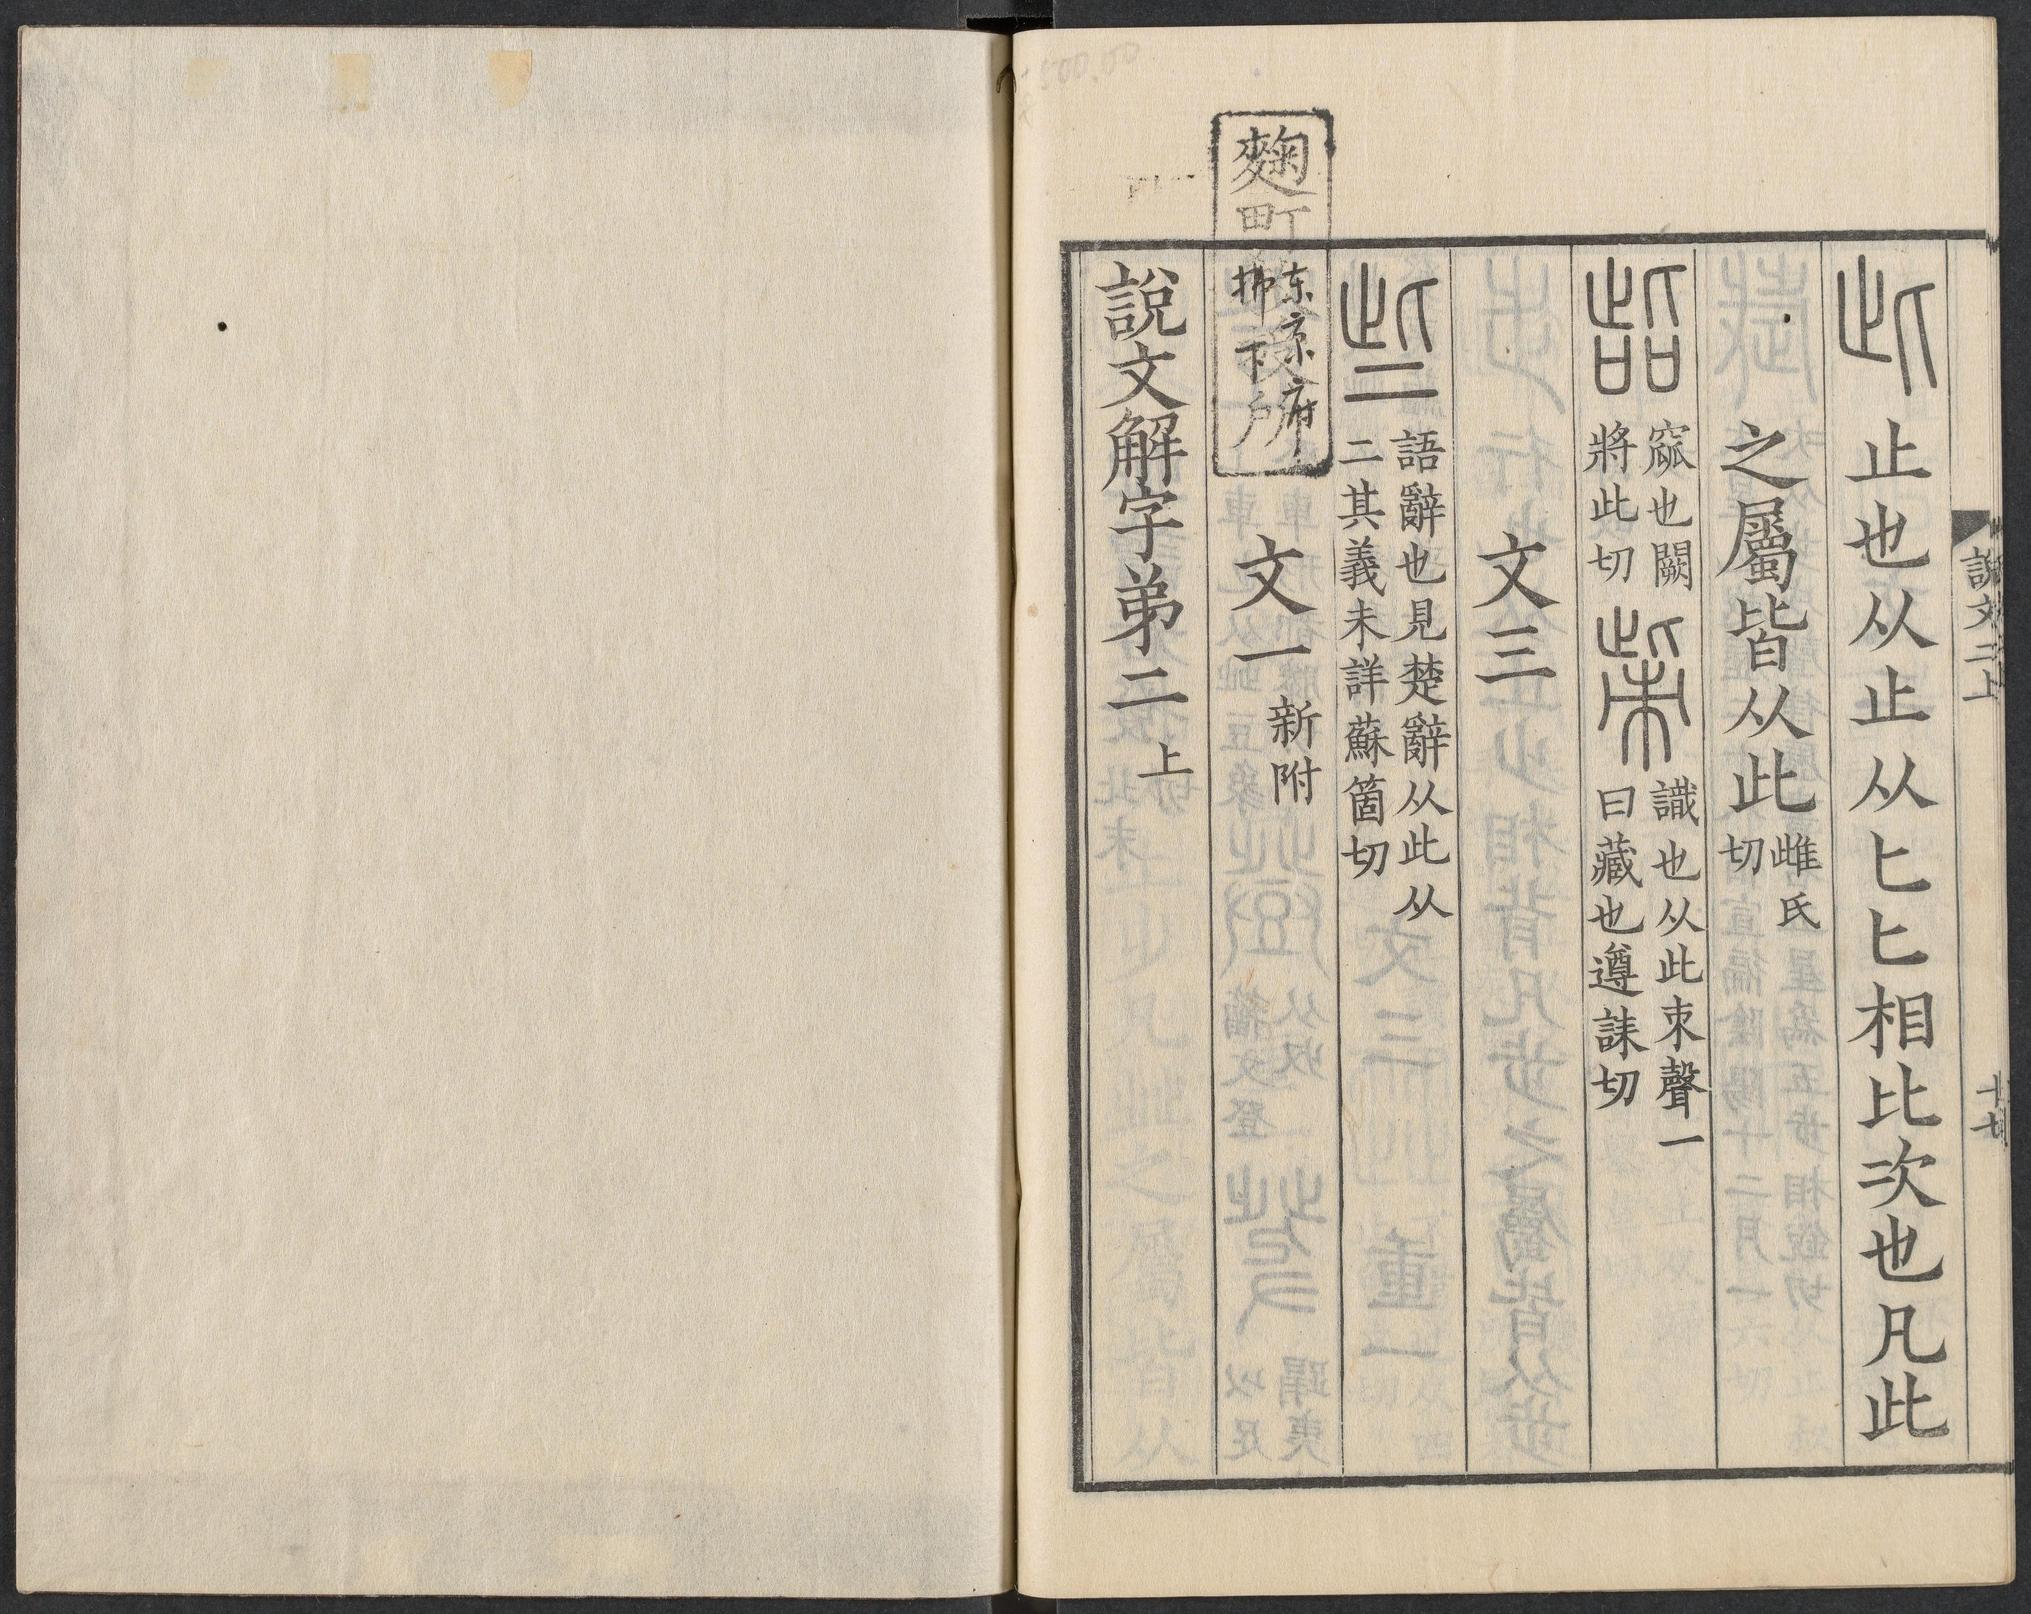 說文二上
十七
此 止也从止从匕匕相比次也凡此
之屬皆从此 雌氏
切
啙 窳也闕
將此切
㭰 識也从此朿聲一
曰藏也遵誄切
文三
些 語辭也見楚辭从此从
二其義未詳蘇箇切
文一 新附
說文解字弟二 上
麴町
东京府